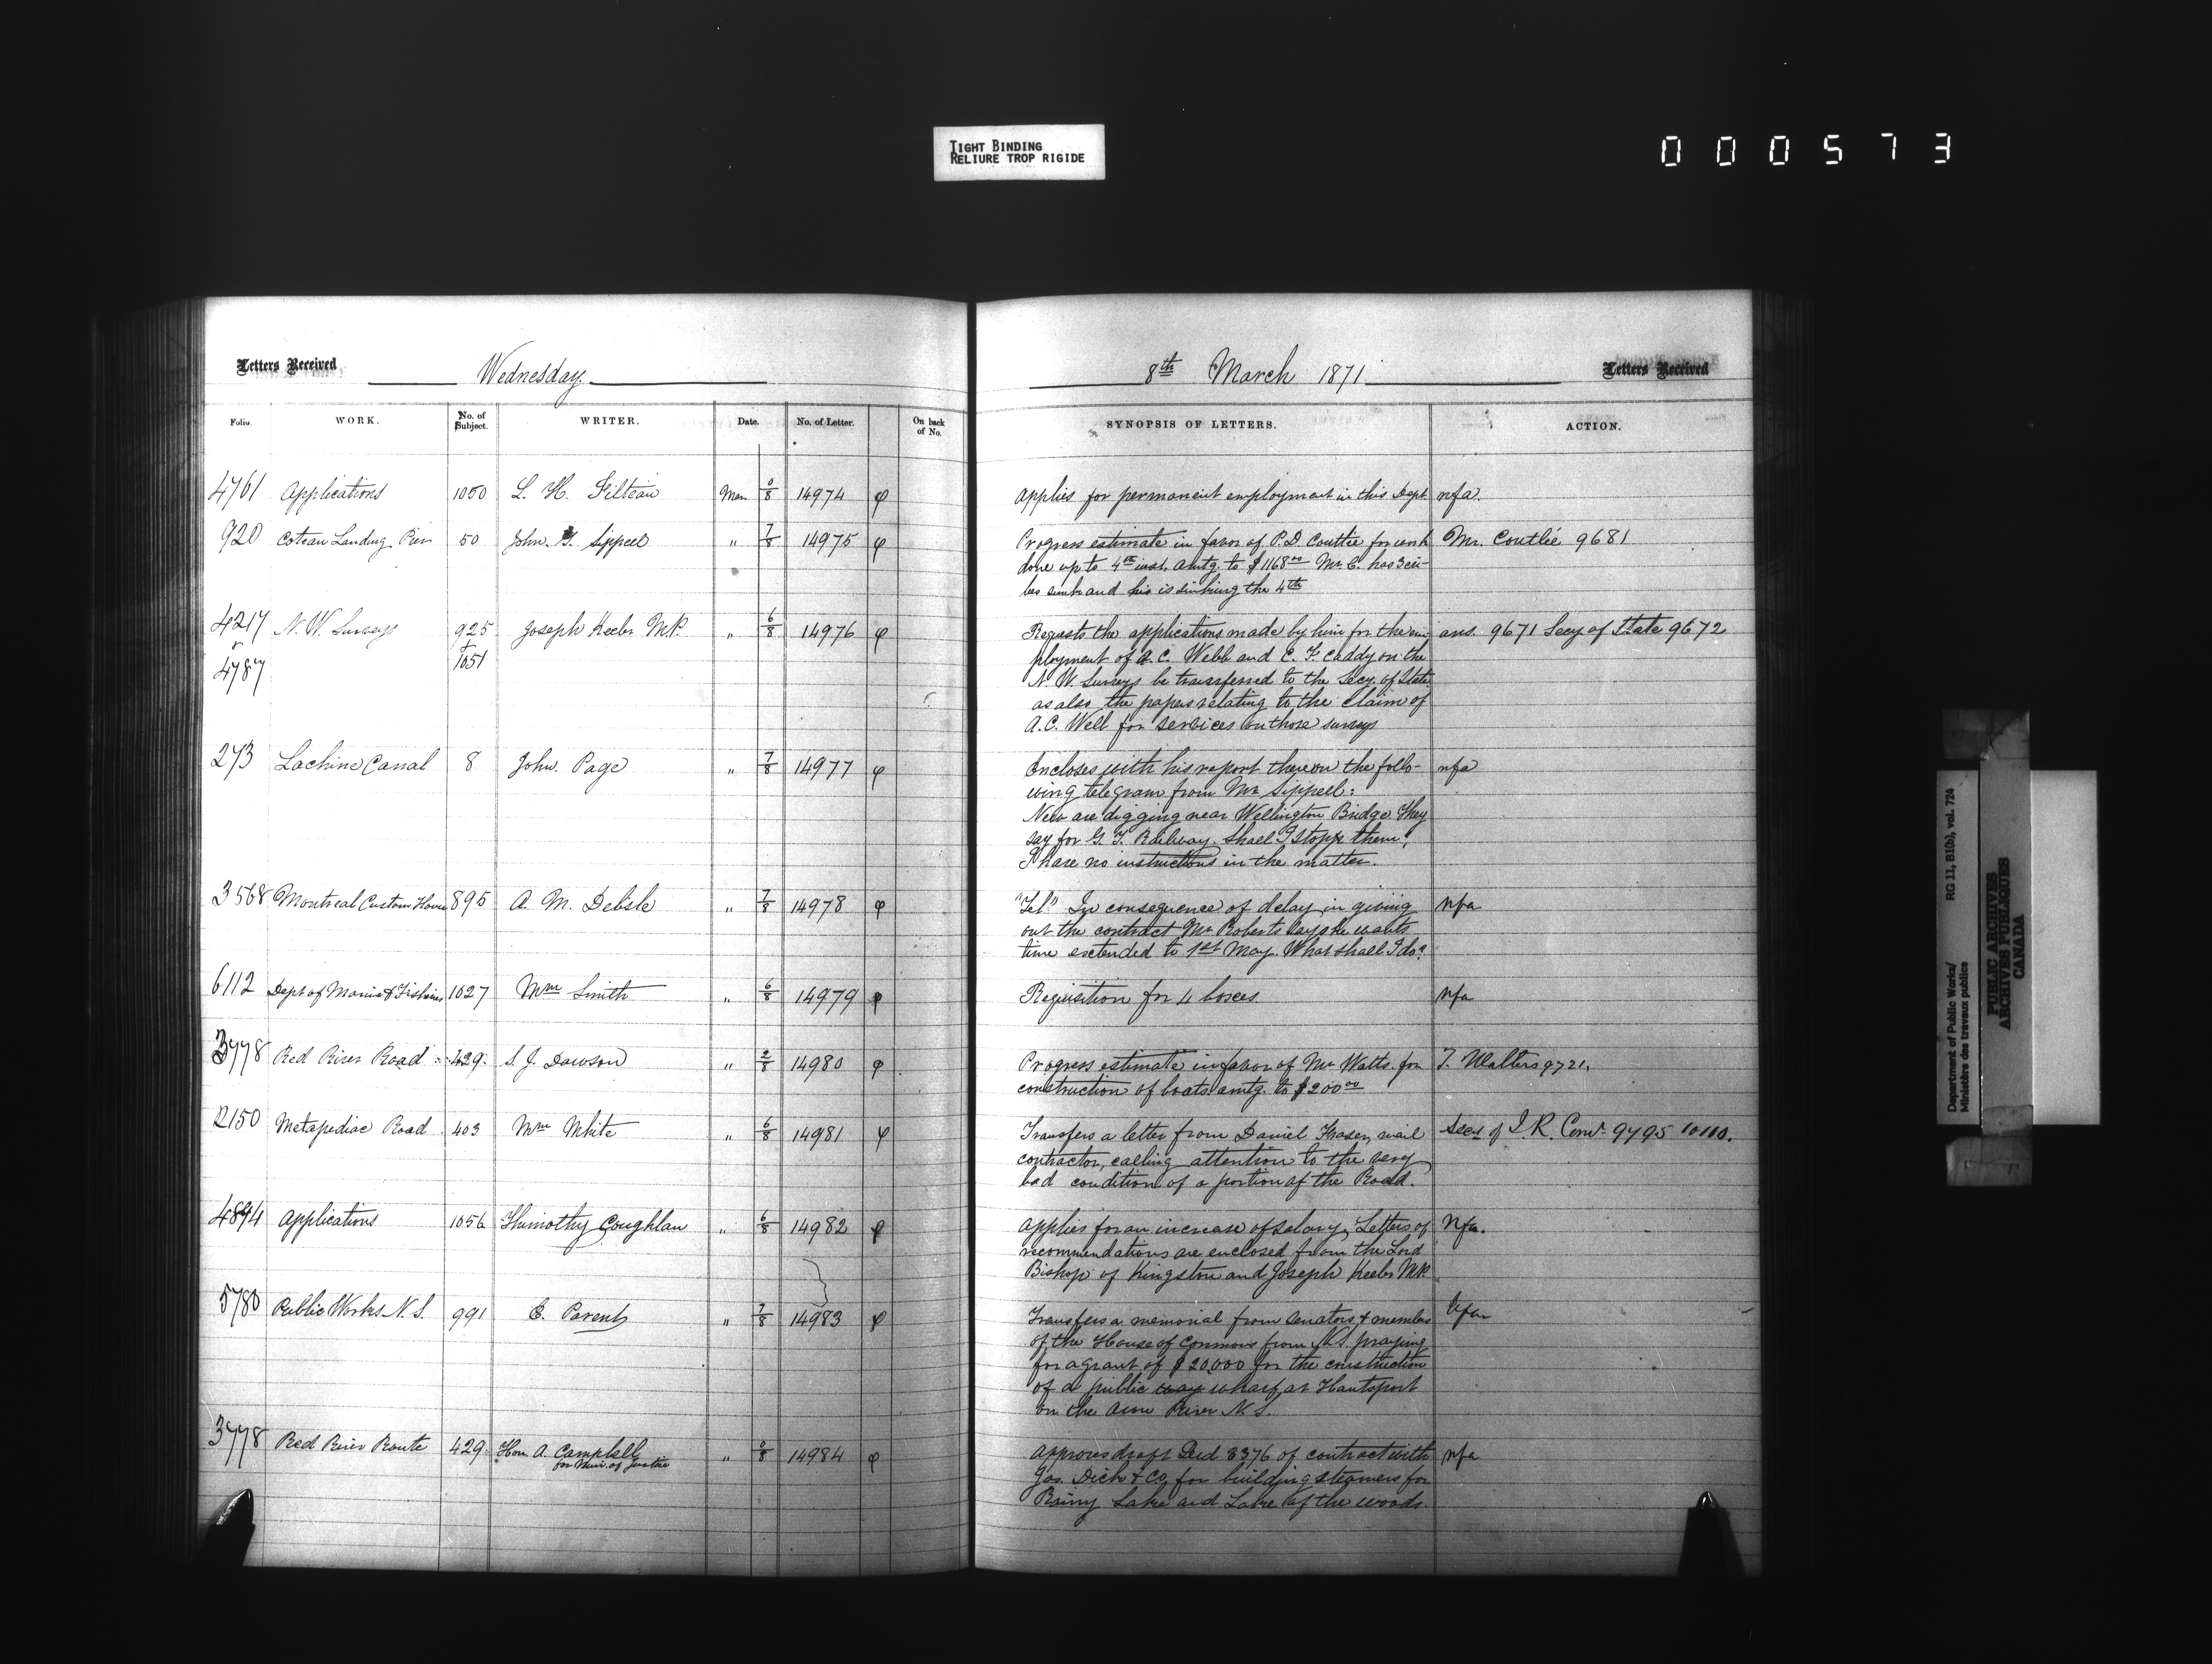 TIGHT BINDING
RELIURE TROP RIGIDE
000573
Letters Received Wednesday.
8th March 1871 Letters Received
Folio. WORK. No. of Subject. WRITER. Date. No. of Letter. On back of No.
SYNOPSIS OF LETTERS. ACTION.
4761 Applications 1050 L. H. Filteau Mar 0/8 14974 φ
Applies for permanent employment in this Dept. nfa.
920 Coteau Landing Pier 50 John G. Sippell " 7/8 14975 φ
Progress estimate in favor of P.D Couttée for work Mr. Coutlée 9681
done up to 4th inst. amtg. to $1168.00 Mr C. has 3 cri-
bs sunk and his is sinking the 4th
4217 N. W. Surveys 925 Joseph Keeler M.P. " 6/8 14976 φ
& 4787 & 1051
Requests the applications made by him for the em- ans. 9671 Secy of State 9672
ployment of A. C. Webb and C. F. Caddy on the
N. W. Surveys be transferred to the Secy. of State
as also the papers relating to the Claim of
A. C. Webb for services on those surveys
273 Lachine Canal 8 John Page " 7/8 14977 φ
Encloses with his report thereon the follo- nfa
wing telegram from Mr Sippell:
New are digging near Wellington Bridge They
say for G. T. Railway. Shall I stopp them?
I have no instructions in the matter.
3568 Montreal Custom House 895 A. M. Delisle " 7/8 14978 φ
"Tel." In consequence of delay in giving nfa
out the contract Mr Roberts says he wants
time extended to 1st May. What shall I do?
6112 Dept of Marine & Fisheries 1027 Wm Smith " 6/8 14979 φ
Requisition for 4 boxes nfa
3778 Red River Road 429 S. J. Dawson " 2/8 14980 φ
Progress estimate in favor of Mr Watts for T. Walters 9721.
construction of boats amtg. to $200.00
2150 Metapediac Road 403 Wm White " 6/8 14981 φ
Transfers a letter from Daniel Fraser, mail Secy of I. R. Comrs 9795 10110.
contractor, calling attention to the very
bad condition of a portion of the Road.
4894 Applications 1056 Thimothy Coughlan " 6/8 14982 φ
Applies for an increase of salary, Letters of Nfa.
recommendations are enclosed from the Lord
Bishop of Kingston and Joseph Keeler M.P.
5780 Public Works N. S. 991 E. Parent " 7/8 14983 φ
Transfers a memorial from Senators & members Nfa
of the House of Commons from N.S. praying
for a grant of $20,000 for the construction
of a public way wharf at Hantsport
on the Avon River N. S.
3778 Red River Route 429 Hon A. Campbell " 0/8 14984 φ
for Min. of Justice
Approves draft Deed 3376 of contract with nfa
Jas. Dick & Co, for building steamers for
Rainy Lake and Lake of the woods.
Department of Public Works/ RG 11, B1(b), vol. 724
Ministère des travaux publics
PUBLIC ARCHIVES
ARCHIVES PUBLIQUES
CANADA